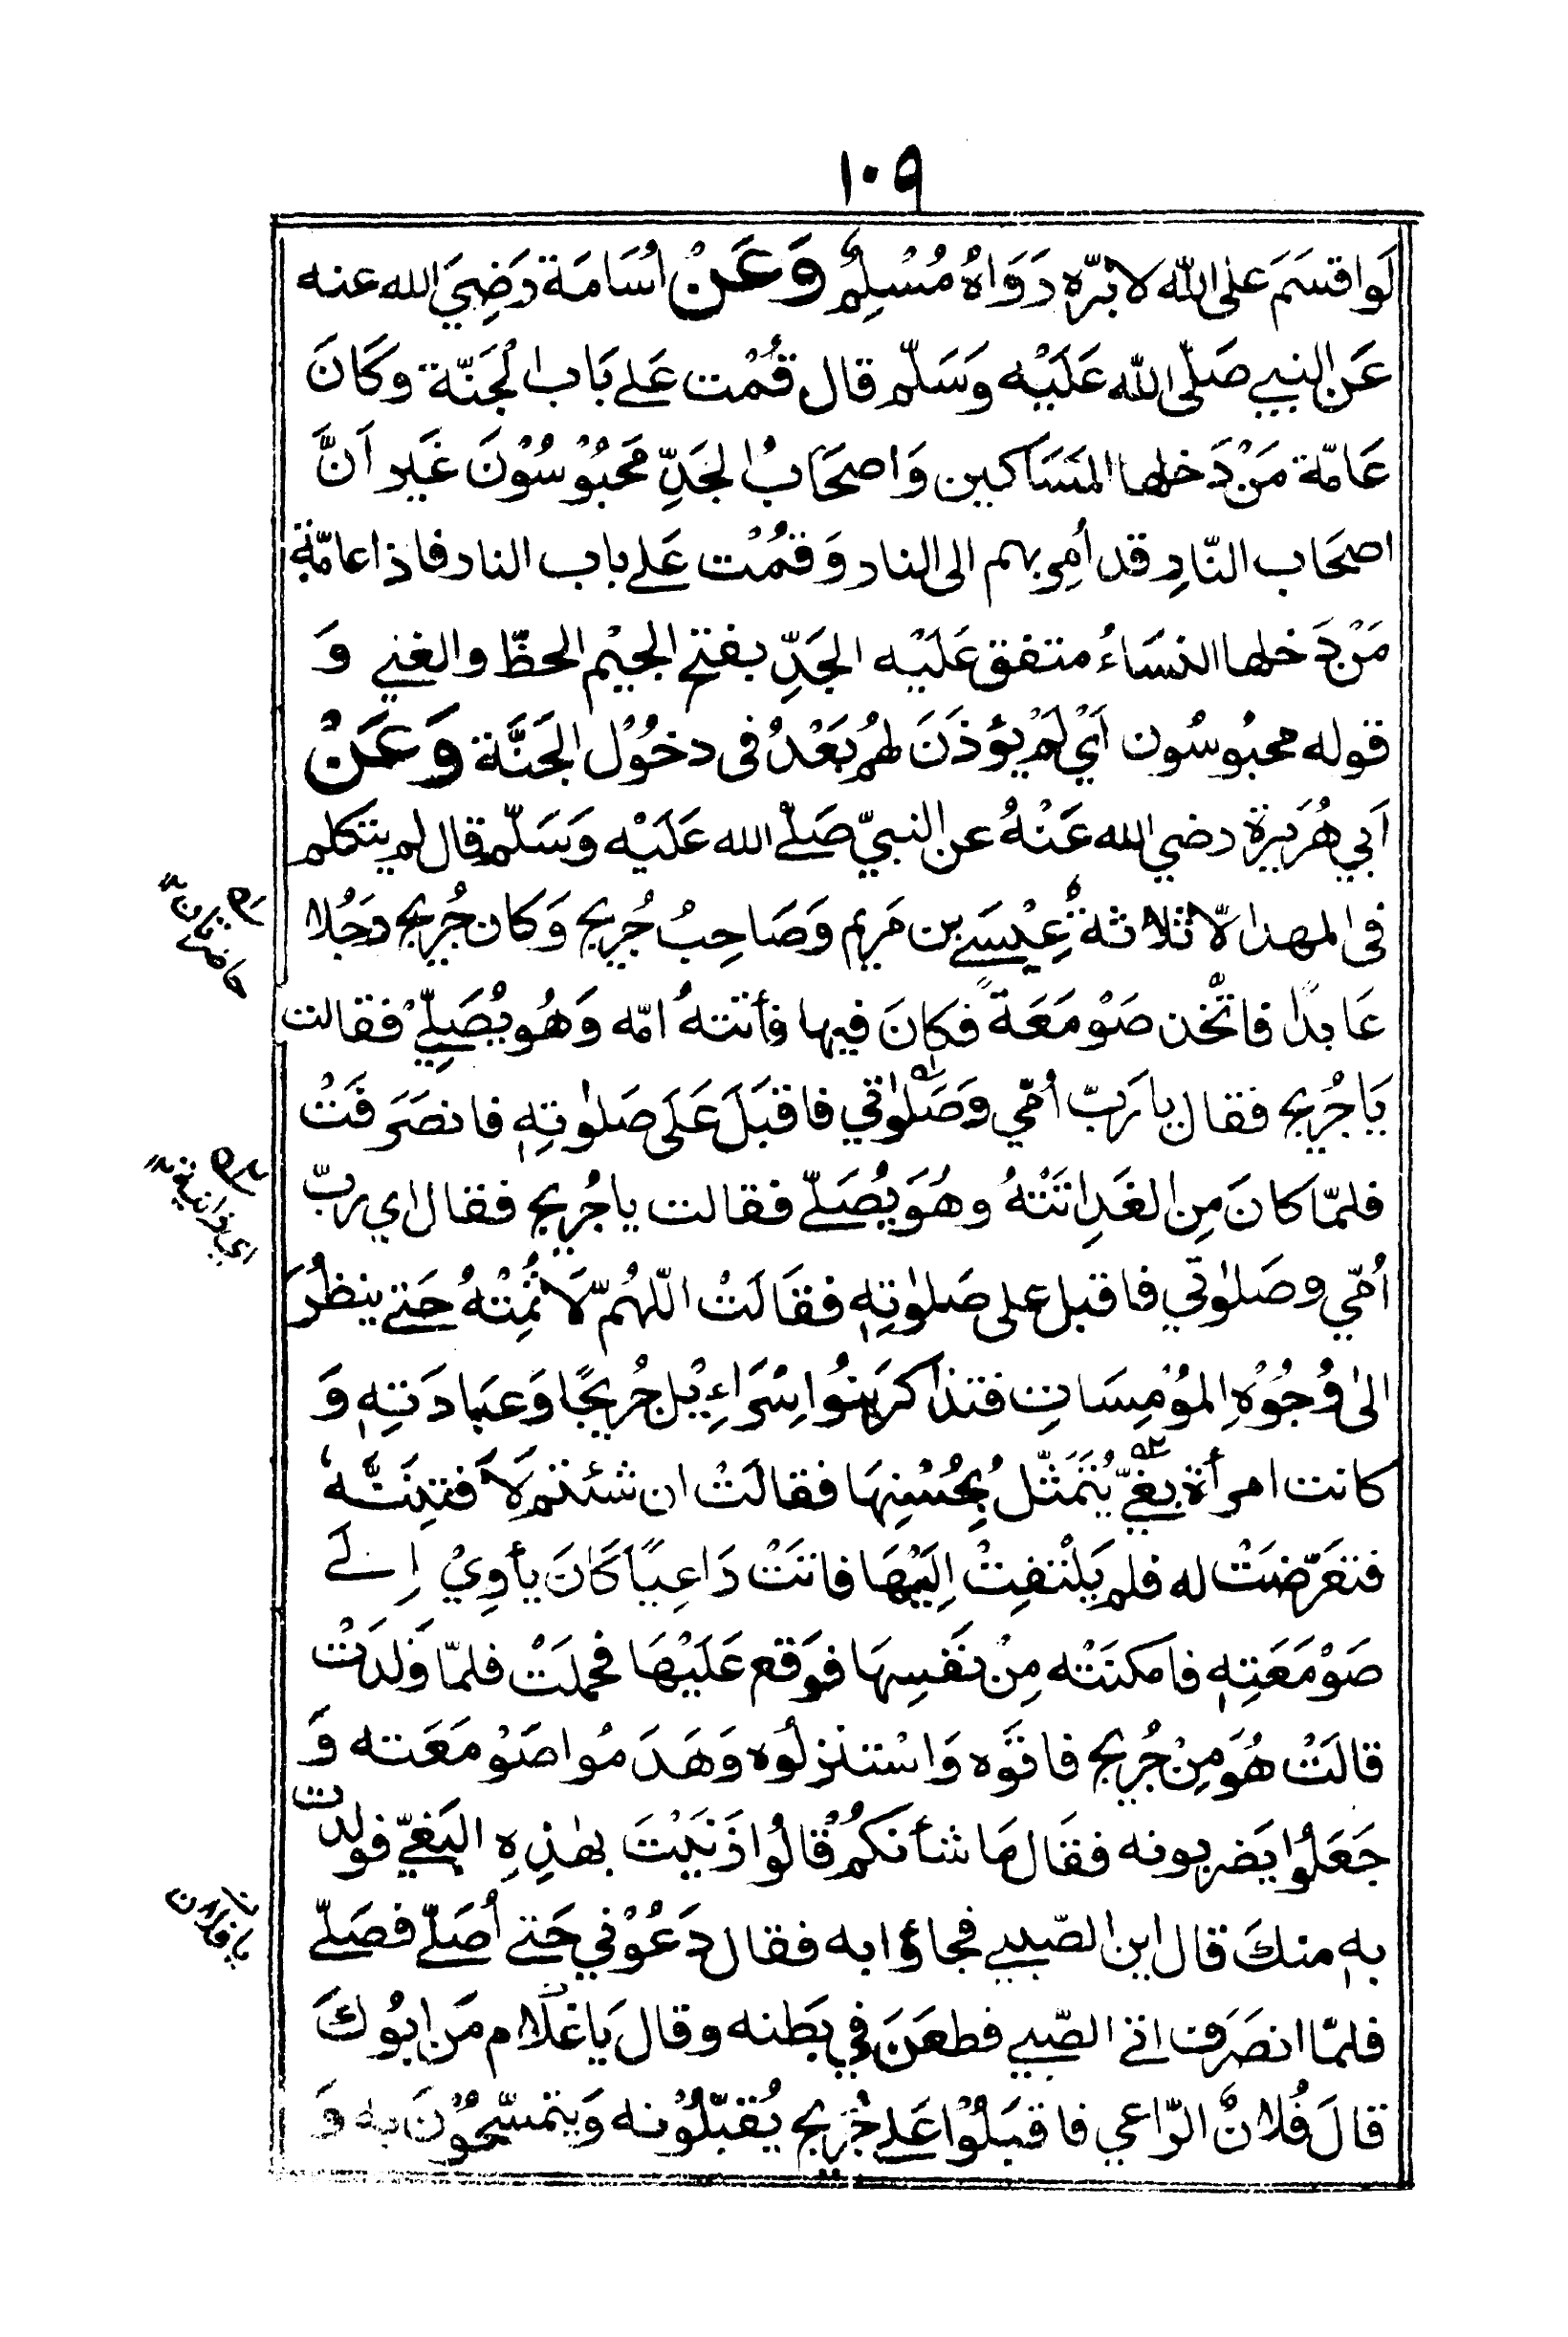 ١٠٩
لَوا قسَمَ عَلى الله لابَرّه رَوَاهُ مُسْلِمٌ وَعَنْ اُسَامَة رَضِيَ الله عنه
عَن النبي صَلّى الله عَلَيْه وَسَلّم قال قُمْت عَلے بَاب الْجَنّة وكَانَ
عَامّة مَنْ دَخلها المَسَاكين وَاصحَابُ الجَدِّ مَحبُوْسُوْنَ غَير اَنَّ
اصحَاب النّارِ قد اُمِر بهم الى النار وَقمُتْ عَلے باب النار فاذا عامّة
مَنْ دَخلها النسَاءُ متفق عَلَيْه الجَدِّ بفتح الجيْم الحظّ والغني وَ
قوله محبُوسُون اَيْ لَمْ يؤذَنَ لهُم بَعْدُ في دخُوْل الجَنَّة وَعَنْ
اَبي هُرَيرة رضي الله عَنْهُ عن النبيّ صَلّے الله عَلَيْه وَسَلّم قال لم يتَكلم
في المهد الّا ثلاثة عِيْسَے بن مَريم وَصَاحِبُ جُريج وَكان جُريج رجُلا
عَابدًا فاتّخذ صَوْمَعَةً فكانَ فيها فأتتهُ امّه وَهُو يُصَلِّيْ فقالت
يَا جُريج فقال يا رَبّ اُمّي وَصَلٰوتي فاقبَلَ عَلَى صَلٰوتِهٖ فانصَرَفَتْ
فلمّا كانَ مِن الغَدِ اتَتْهُ وهُوَ يُصَلّے فقالت يا جُريج فقال اي ربّ
اُمّي وصَلٰوتي فاقبل على صَلٰوتِهٖ فقَالَتْ اللّهُمّ لَا تُمِتْهُ حَتے ينظُرَ
الىٰ وُجُوْهِ المُوْمِسَاتِ فتذاكَر بَنُوا سْرَاءِيْل جُريجًا وَعبَادَتِهٖ وَ
كانت امرأة بغيّ يُتَمَثّل بِحُسْنِهَا فقالَتْ ان شئتم لَأفتِنَنَّه
فتعَرّضَتْ له فلم يَلْتفِتْ اِلَيْهَا فاتتَ رَاعِيًا كَانَ يأوِيْ اِلَے
صَوْمَعَتِهٖ فامكنَتْه مِنْ نفَسِهَا فوَقع عَلَيْهَا فحملَتْ فلمّا وَلدَتْ
قالَتْ هُوَ مِنْ جُريج فاتَوَه وَاسْتنزلُوه وَهَدَمُوا صَوْمَعَته وَ
جَعَلُوا يَضربونه فقَال مَا شأنكُمْ قالُوا زَنَيْتَ بهٰذِهِ البَغيّ فولدت
بهٖ منكَ قال اين الصّبي فجاؤا به فقال دَعُوْني حَتے اُصَلّے فصَلّے
فلمّا انصَرَف اتى الصّبي فطعَنَ في بَطنه وقال يَا غلَام مَن ابُوكَ
قالَ فُلانٌ الرّاعي فاقبَلُوْا عَلے جُريج يُقبّلُوْنه وَيتمسّحُوْنَ به وَ